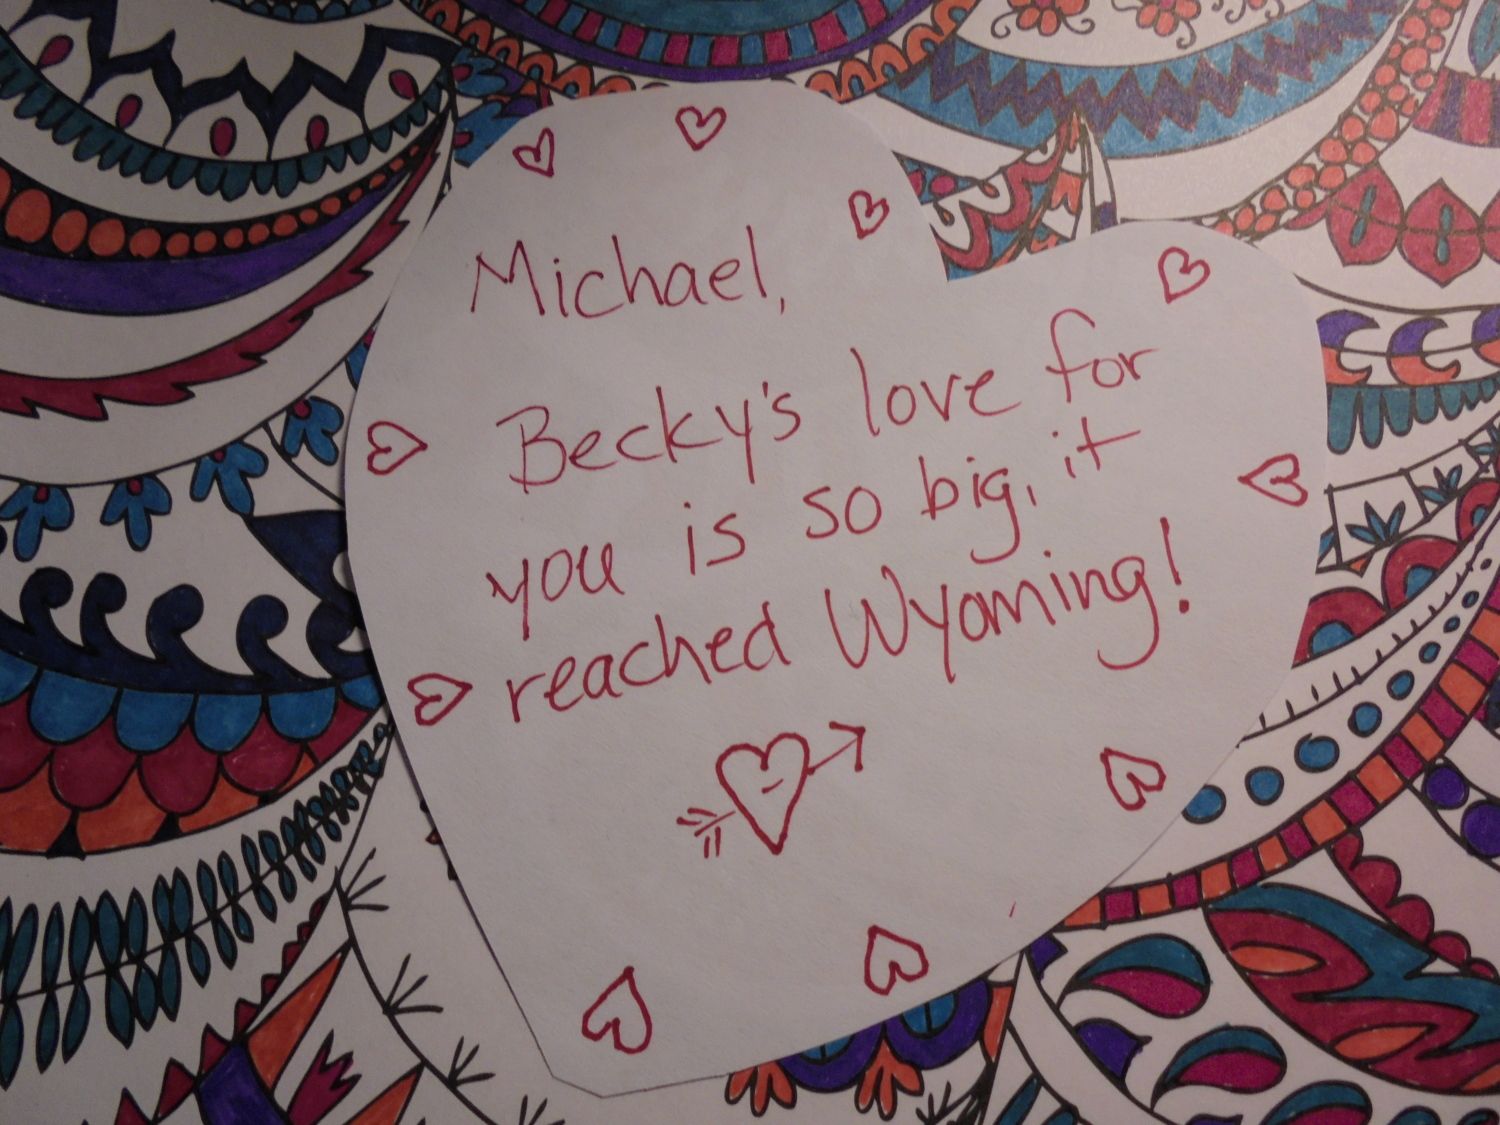 Michael,
Becky's love for
you is so big, it
reached Wyoming!